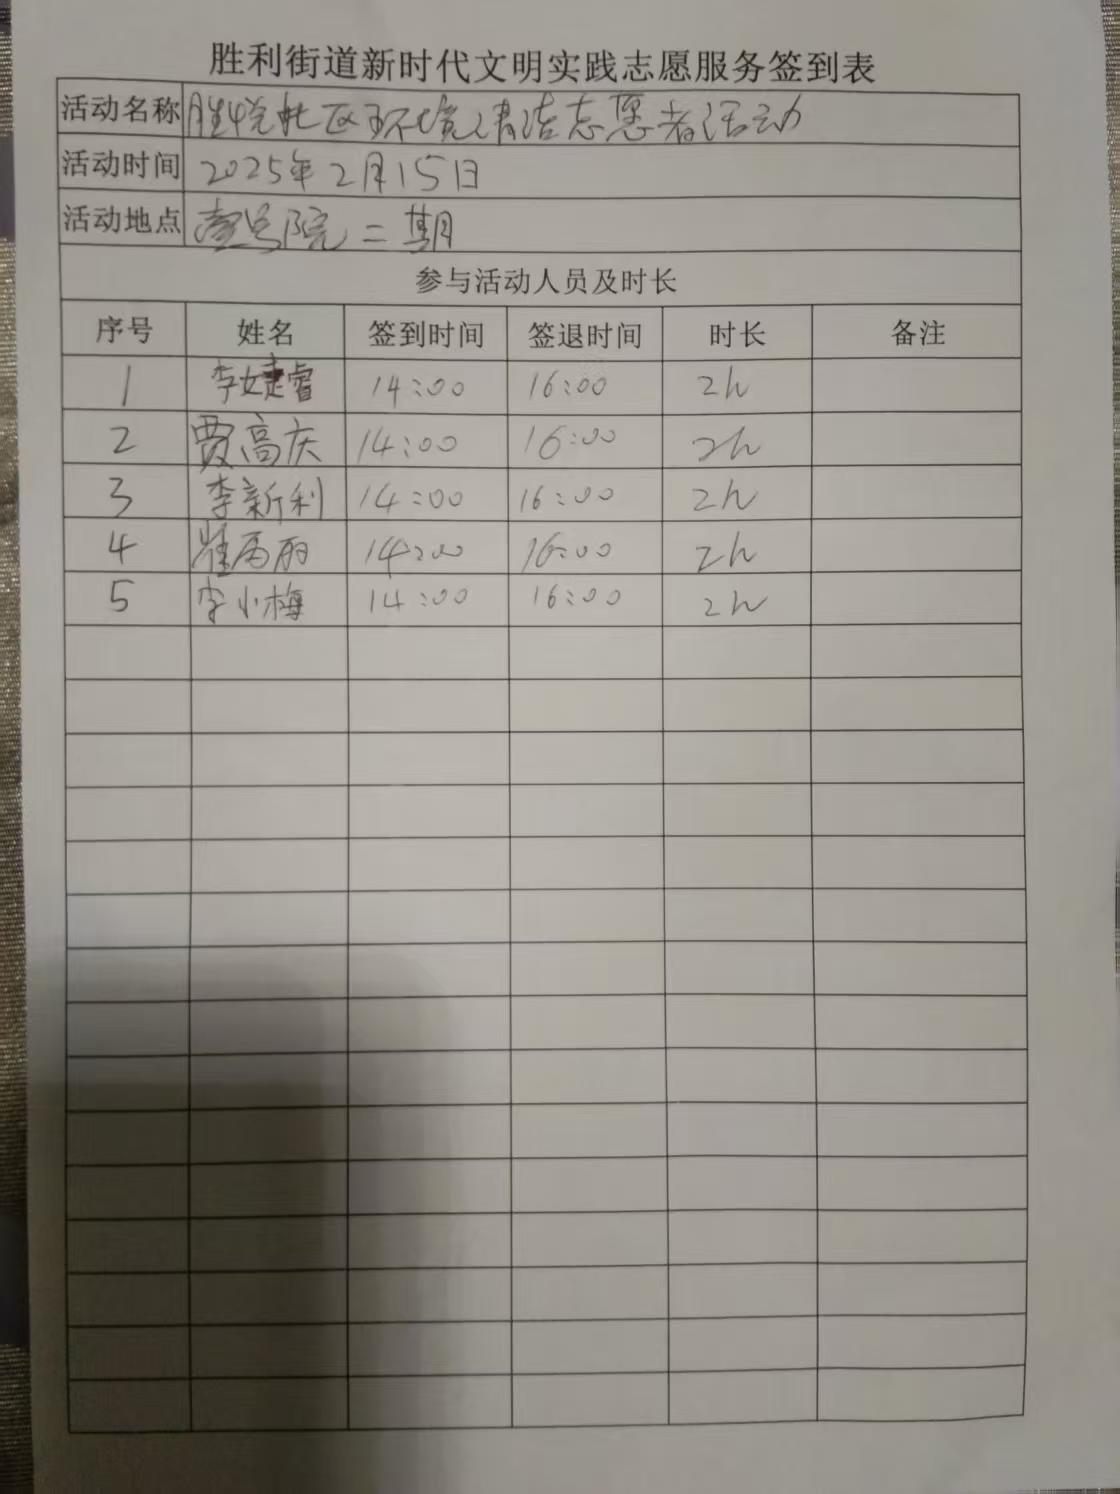 胜利街道新时代文明实践志愿服务签到表
活动名称 胜悦社区环境清洁志愿者活动
活动时间 2025年2月15日
活动地点 壹号院二期
参与活动人员及时长
序号 姓名 签到时间 签退时间 时长 备注
1 李婕睿 14:00 16:00 2h
2 贾高庆 14:00 16:00 2h
3 李新利 14:00 16:00 2h
4 14:00 16:00 2h
5 李小梅 14:00 16:00 2h